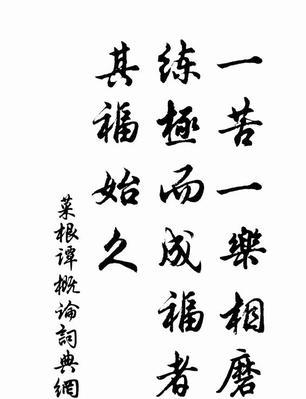 一苦一樂相磨
练極而成福者
其福始久
菜根谭概论詞典網